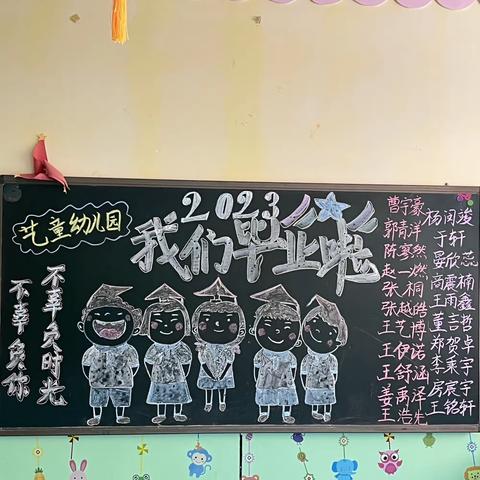 2023
艺童幼儿园
我们毕业啦
不辜负时光
不辜负你
曹宇豪
郭青洋
陈寥然
赵一燃
张桐
张越皓
王艺博
王伊诺
王舒涵
姜禹泽
王浩先
杨闵浚
于轩
晏欣蕊
尚震楠
王雨鑫
董言哲
郑贺卓
李荣宇
房宸宇
王铭轩